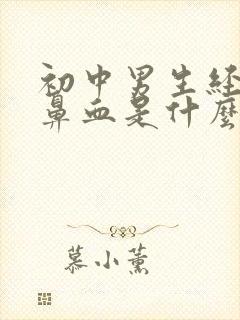 初中男生经
鼻血是什麼
慕小薰